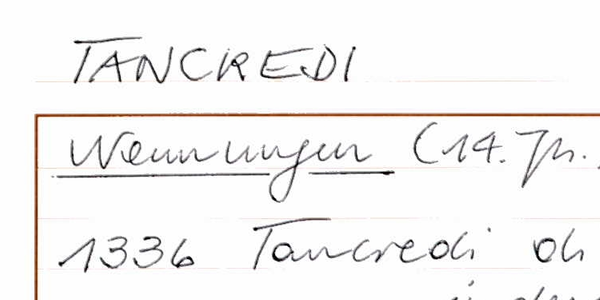 TANCREDI
Wennungen (14. Jh.
1336 Tancredi di
in der